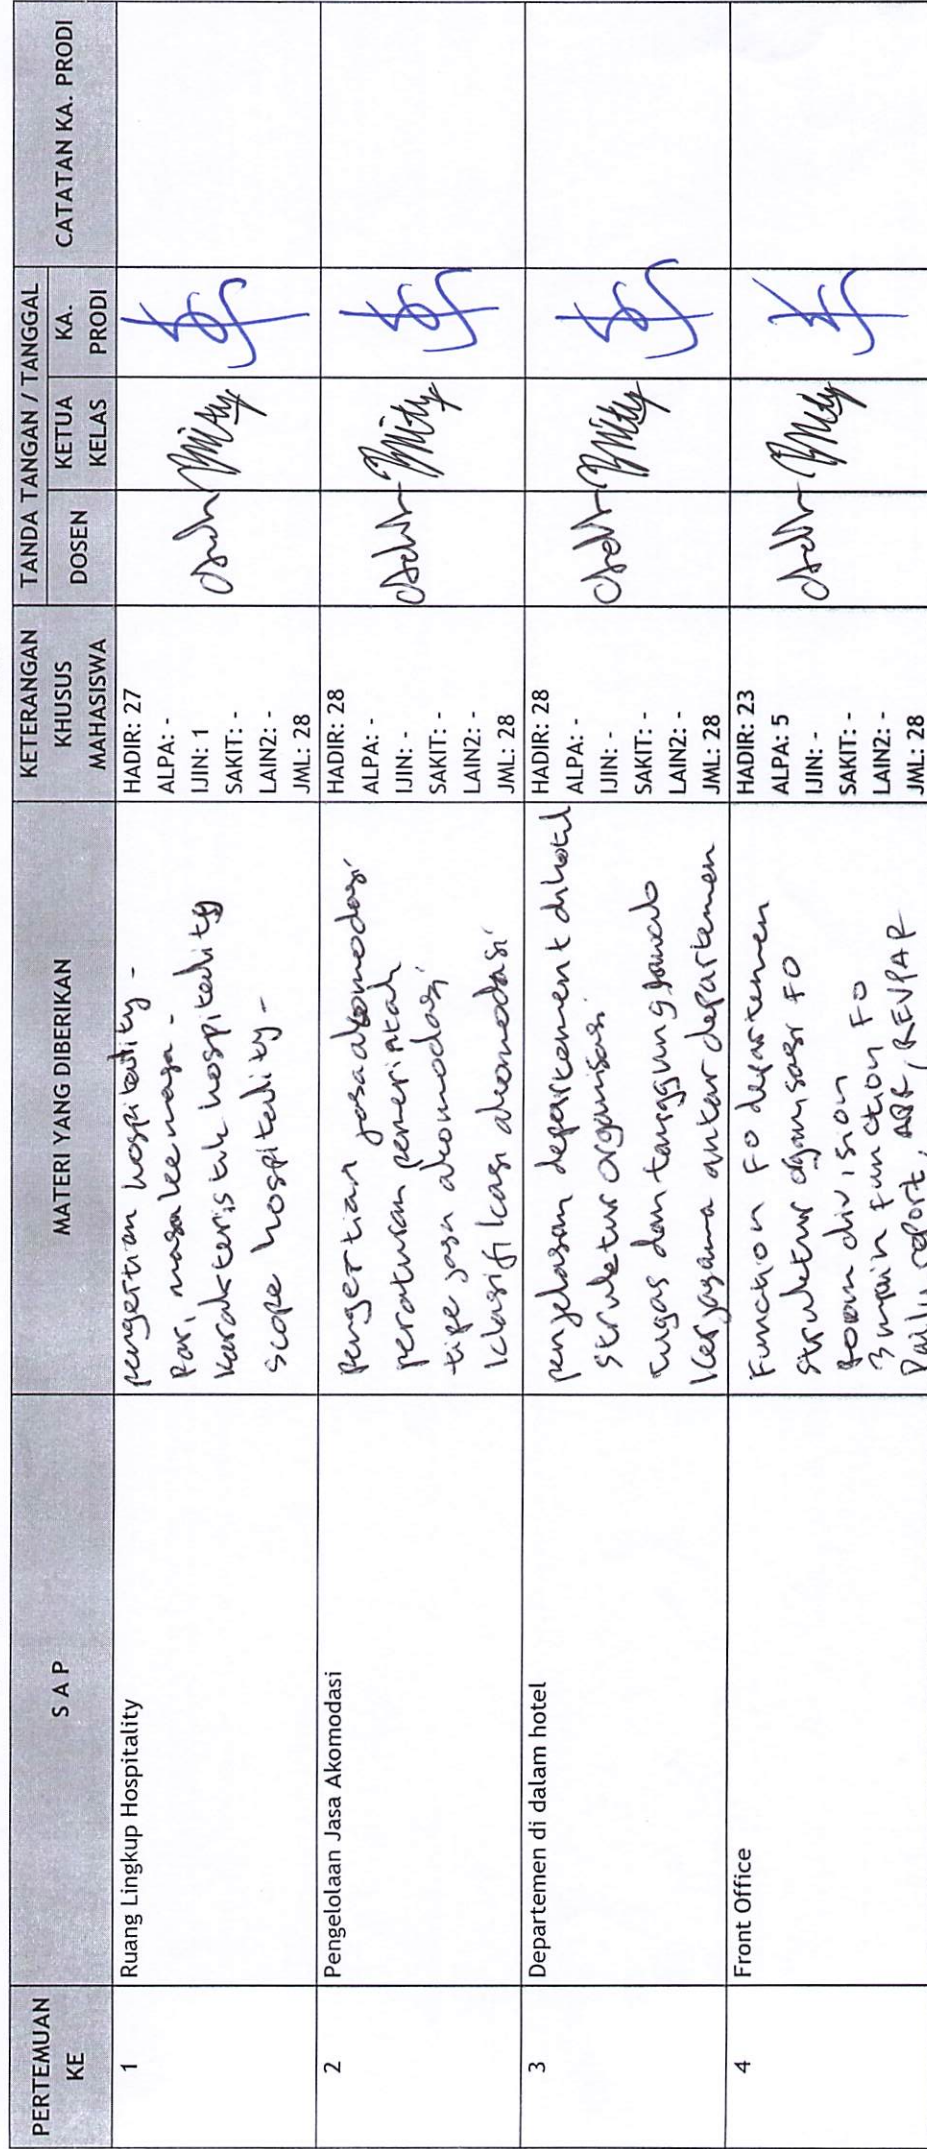 PERTEMUAN
KE
S A P
MATERI YANG DIBERIKAN
KETERANGAN
KHUSUS
MAHASISWA
TANDA TANGAN / TANGGAL
DOSEN
KETUA
KELAS
KA.
PRODI
CATATAN KA. PRODI
1
Ruang Lingkup Hospitality
pengertian hospitality -
hospitality
scope hospitality -
HADIR: 27
ALPA: -
IJIN: 1
SAKIT: -
LAIN2: -
JML: 28
2
Pengelolaan Jasa Akomodasi
Pengertian jasa akomodasi
peraturan pemerintah
tipe jasa akomodasi
klasifikasi akomodasi
HADIR: 28
ALPA: -
IJIN: -
SAKIT: -
LAIN2: -
JML: 28
3
Departemen di dalam hotel
penjelasan departement dihotel
struktur organisasi
tugas dan tanggung jawab
kerjasama antar departemen
HADIR: 28
ALPA: -
IJIN: -
SAKIT: -
LAIN2: -
JML: 28
4
Front Office
Function FO departemen
struktur organisasi FO
room division
3 main function FO
Daily report, ARR, REVPAR
HADIR: 23
ALPA: 5
IJIN: -
SAKIT: -
LAIN2: -
JML: 28